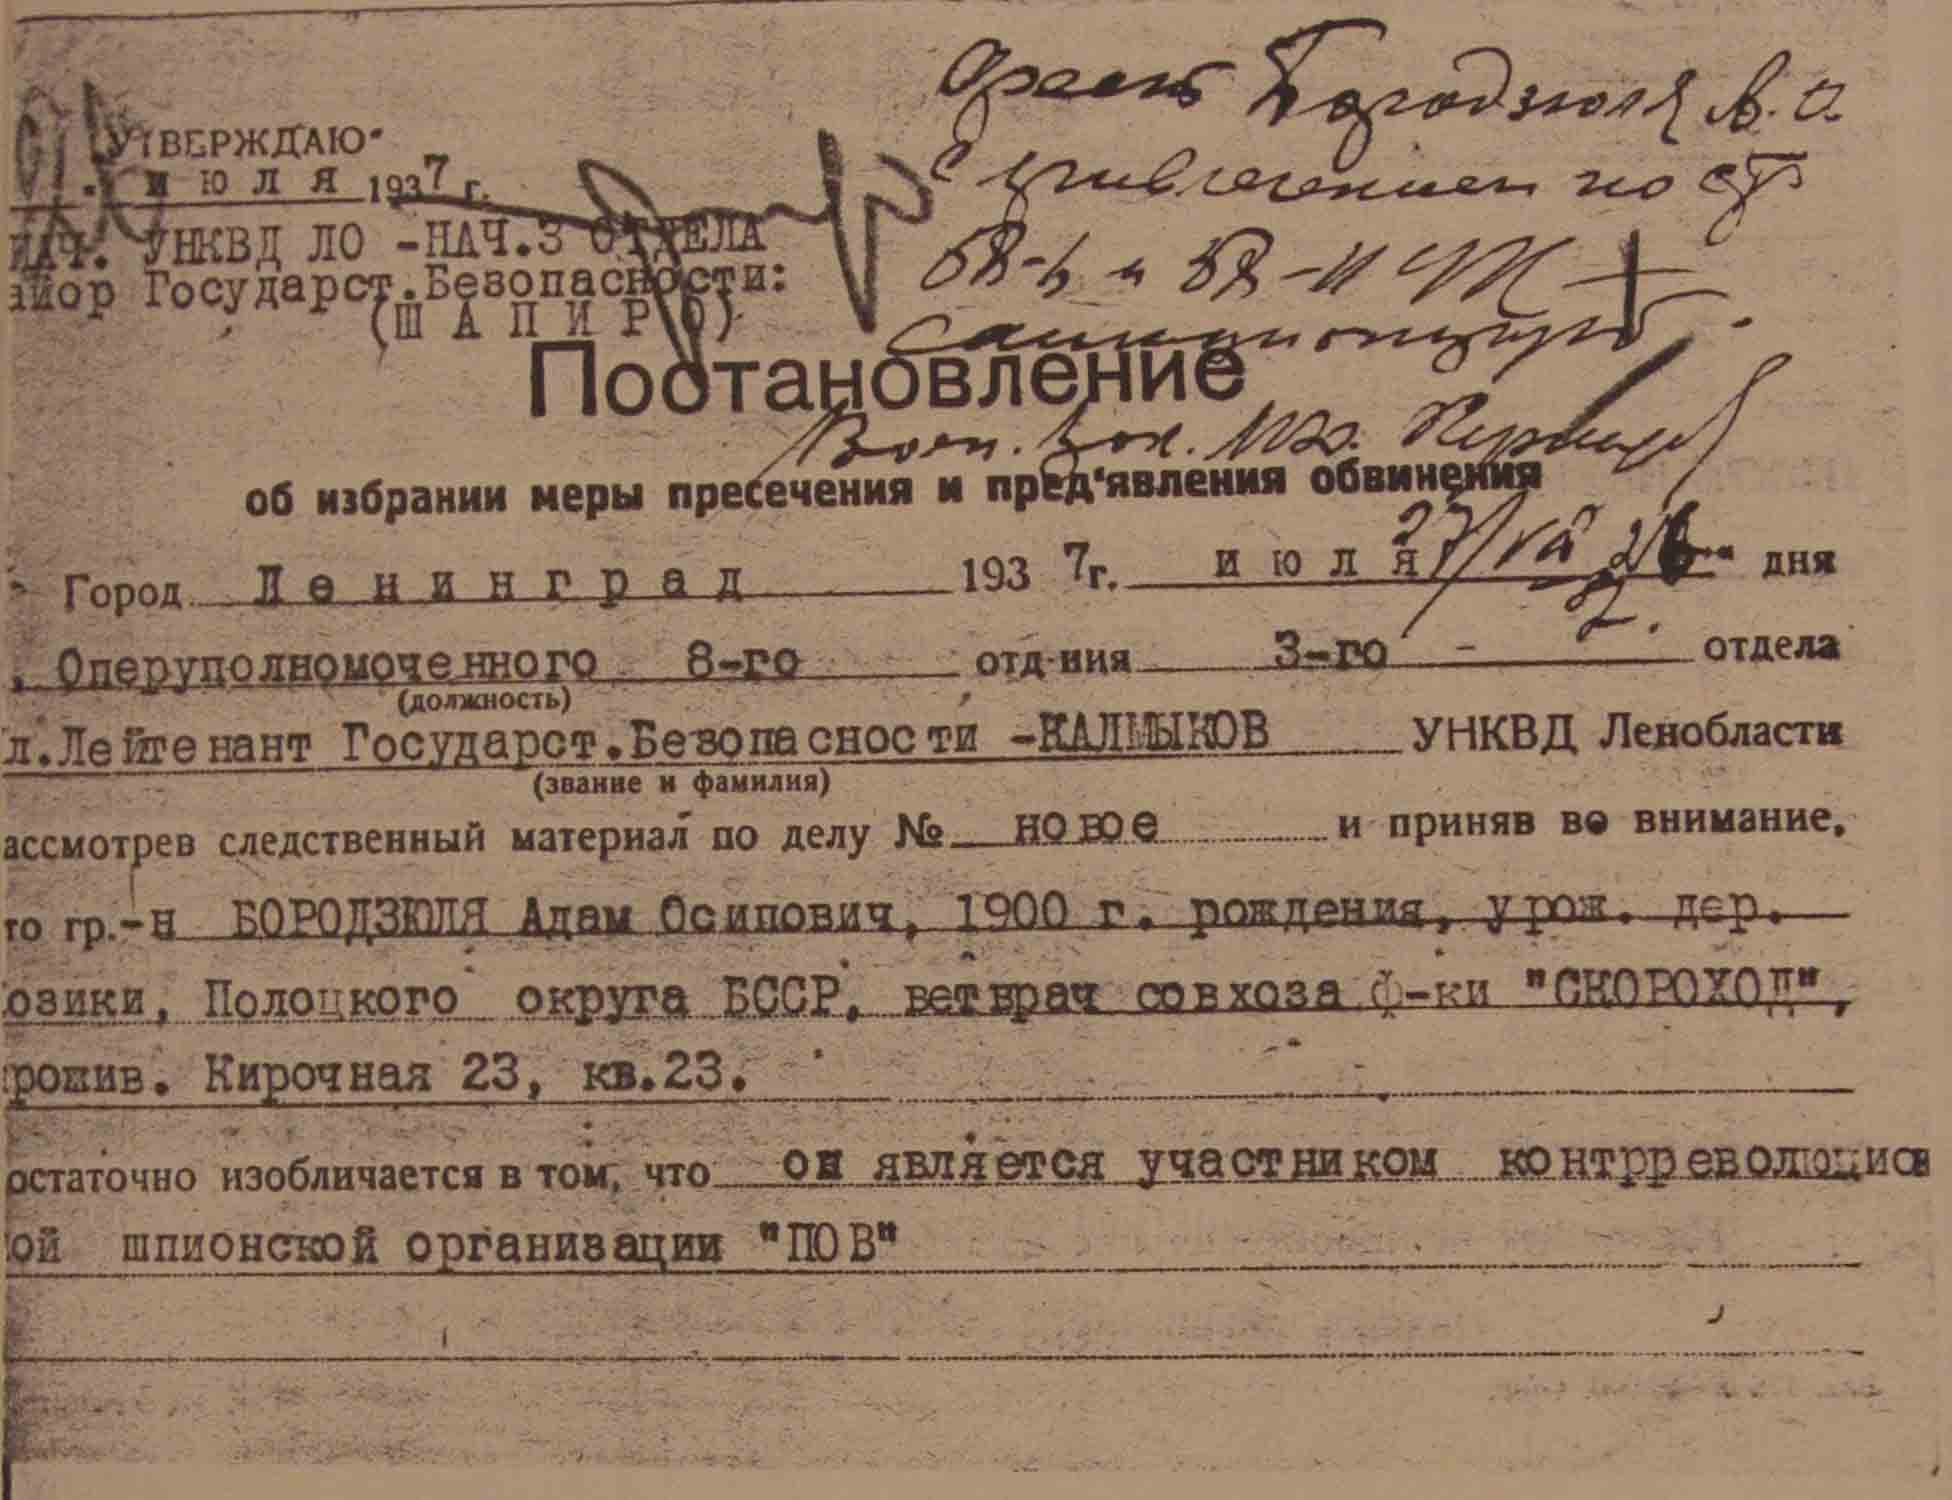 Арест Бородзюля А.О.
с привлечением по ст
58-6 и 58-11 УК
санкционирую.
"УТВЕРЖДАЮ"
июля 1937 г.
НАЧ. УНКВД ЛО -НАЧ.3 ОТДЕЛА
айор Государст.Безопасности:
(ШАПИРО)
Постановление
Воен. Прок.
об избрании меры пресечения и пред'явления обвинения
27/VII
Город Ленинград 1937г. июля 26 дня
, Оперуполномоченного 8-го отд-ния 3-го - отдела
(должность)
л.Лейтенант Государст.Безопасности -КАЛМЫКОВ УНКВД Ленобласти
(звание и фамилия)
ассмотрев следственный материал по делу № новое и приняв во внимание,
то гр.-н БОРОДЗЮЛЯ Адам Осипович, 1900 г. рождения, урож. дер.
озики, Полоцкого округа БССР, ветврач совхоза ф-ки "СКОРОХОД",
рожив. Кирочная 23, кв.23.
остаточно изобличается в том, что он является участником контрреволюцион
ой шпионской организации "ПОВ"